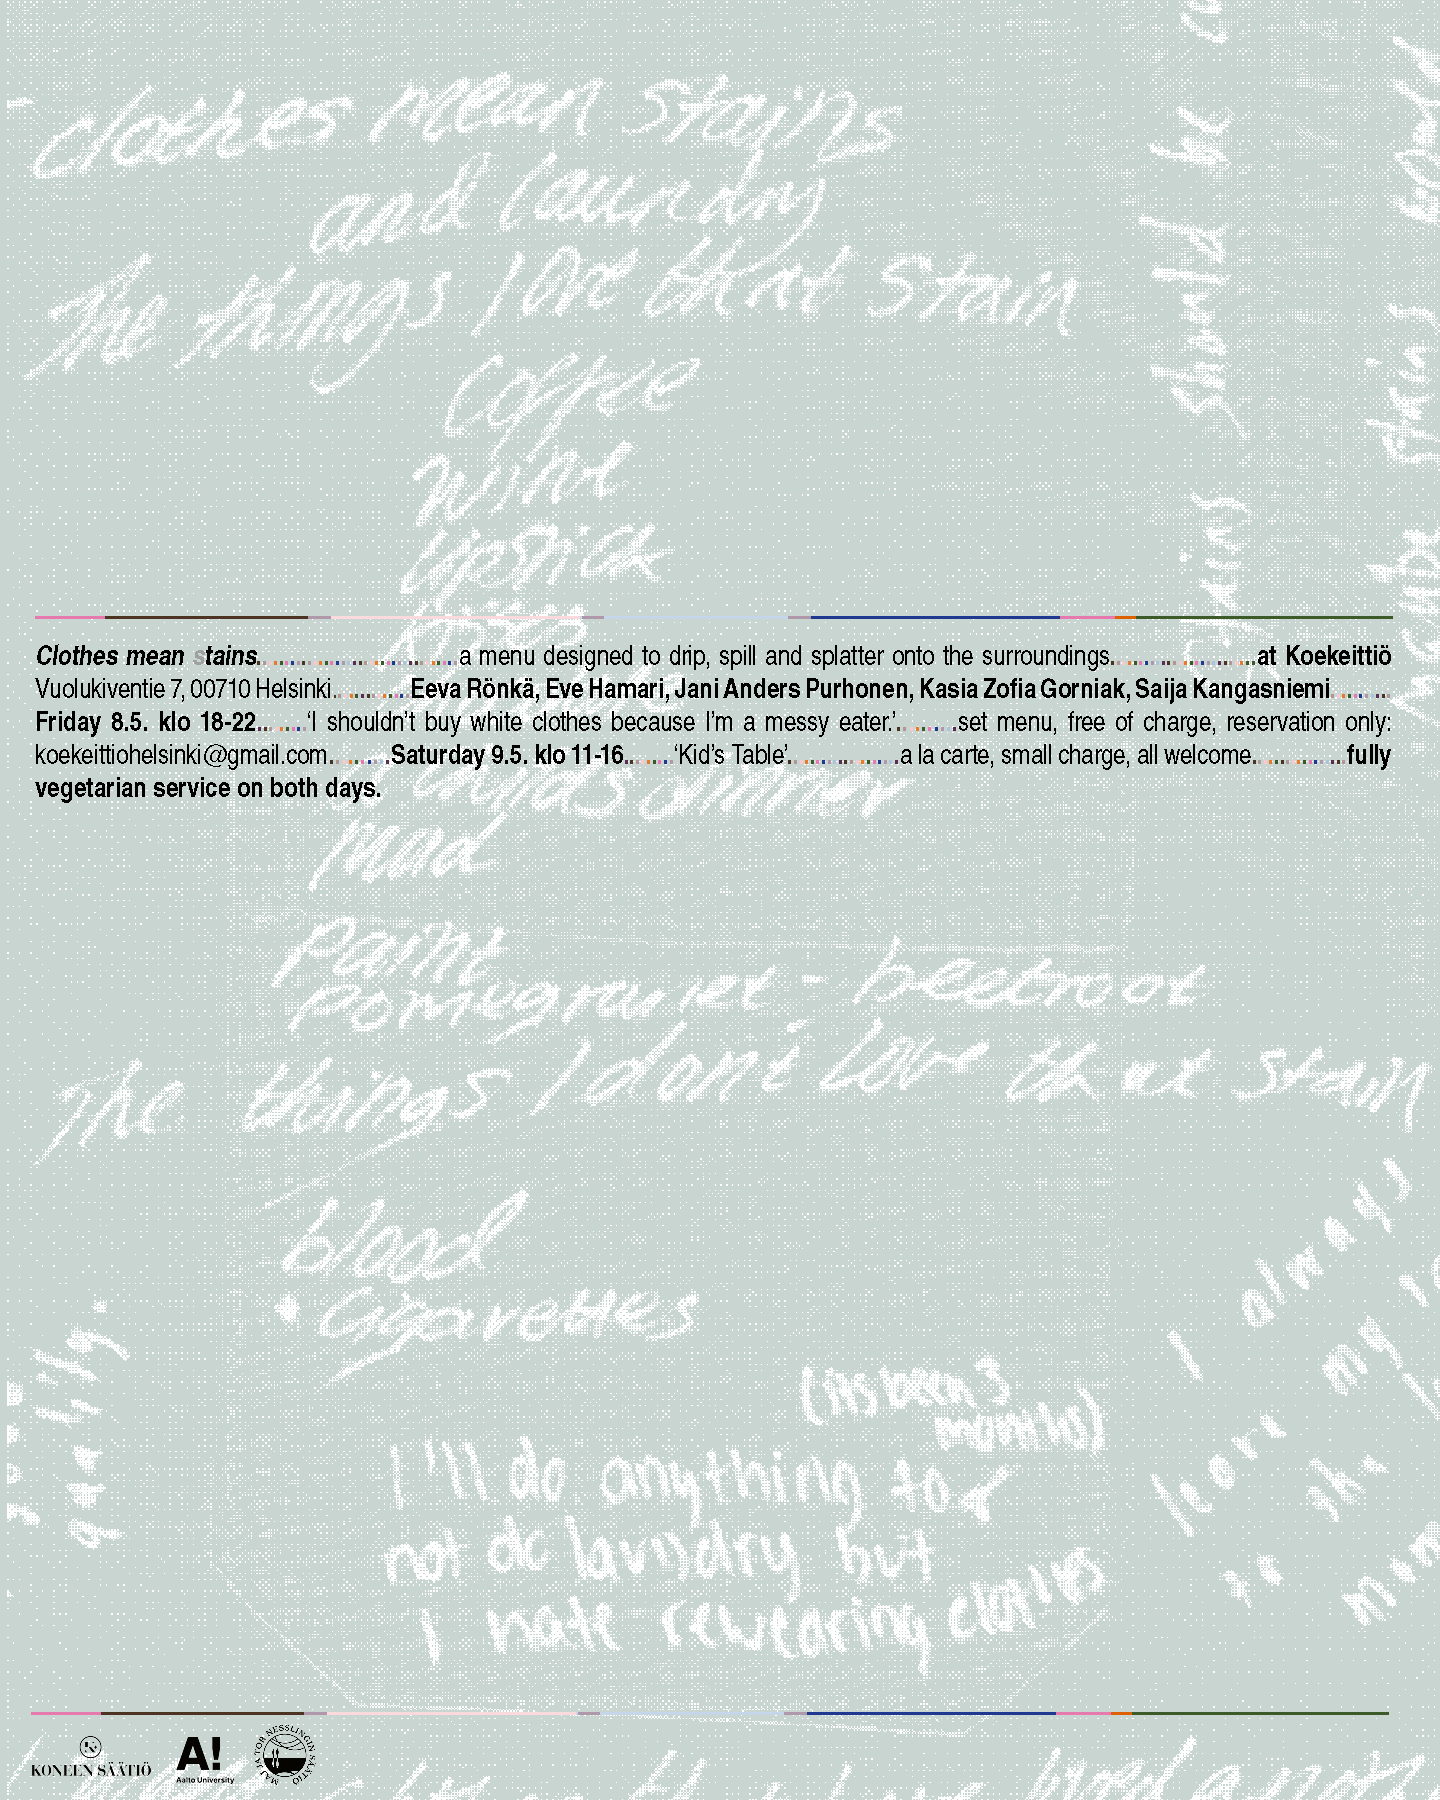 clothes mean stains
and laundry
The things I love that stain
Coffee
wine
lipstick
kisses
Clothes mean stains..........a menu designed to drip, spill and splatter onto the surroundings..........at Koekeittiö
Vuolukiventie 7, 00710 Helsinki..........Eeva Rönkä, Eve Hamari, Jani Anders Purhonen, Kasia Zofia Gorniak, Saija Kangasniemi..........
Friday 8.5. klo 18-22..........‘I shouldn’t buy white clothes because I’m a messy eater.’..........set menu, free of charge, reservation only:
koekeittiohelsinki@gmail.com..........Saturday 9.5. klo 11-16..........‘Kid’s Table’..........a la carte, small charge, all welcome..........fully
vegetarian service on both days.
mud
paint
pomegranet - beetroot
The things I don't love that stain
blood
Cigarettes
(its been 3
months)
I'll do anything to
not do laundry but
I hate rewearing clothes
should be
stains
I always
my
learn
quality.
KONEEN SÄÄTIÖ
A!
Aalto University
MAJ JA TOR NESSLINGIN SÄÄTIÖ